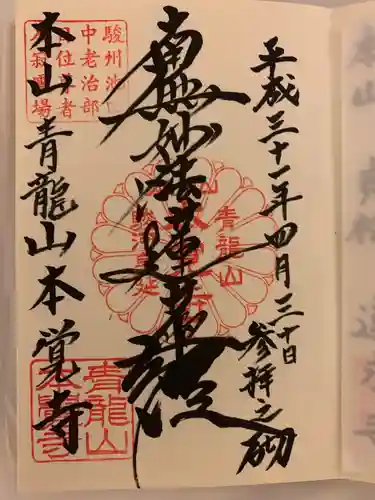 平成三十一年四月三十日
参拝之砌
南無妙法蓮華経
本山 青龍山 本覚寺
駿州池
中老治部
位
者
場
青龍山
青龍山
本覺寺